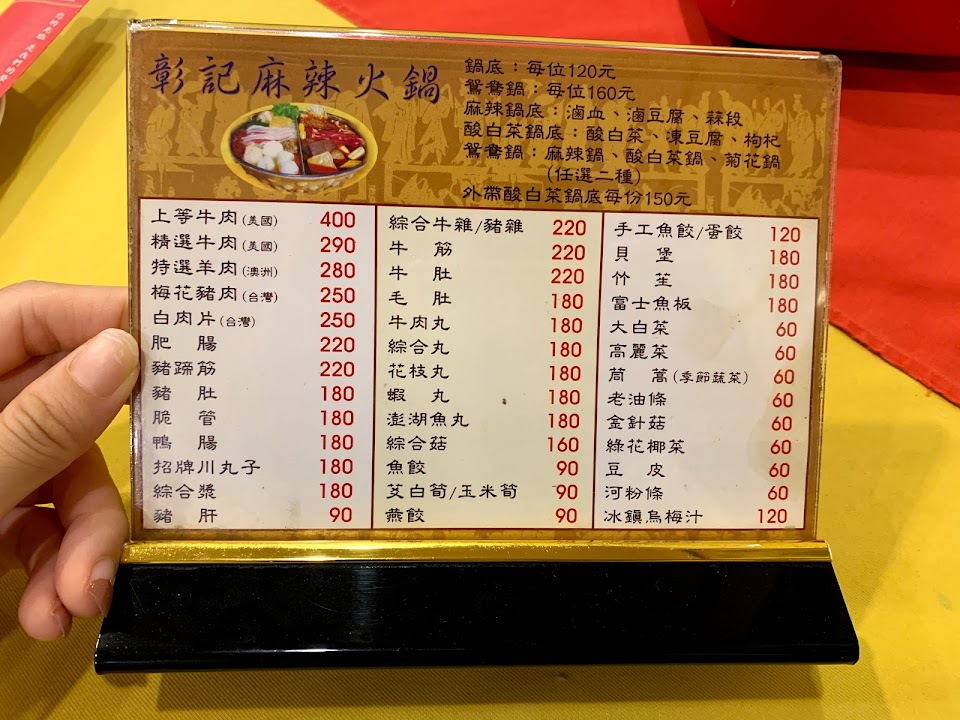 彰記麻辣火鍋
鍋底：每位120元
鴛鴦鍋：每位160元
麻辣鍋底：滷血、滷豆腐、蒜段
酸白菜鍋底：酸白菜、凍豆腐、枸杞
鴛鴦鍋：麻辣鍋、酸白菜鍋、菊花鍋
(任選二種)
外帶酸白菜鍋底每份150元
上等牛肉(美國) 400
精選牛肉(美國) 290
特選羊肉(澳洲) 280
梅花豬肉(台灣) 250
白肉片(台灣) 250
肥 腸 220
豬蹄筋 220
豬 肚 180
脆 管 180
鴨 腸 180
招牌川丸子 180
綜合漿 180
豬 肝 90
綜合牛雜/豬雜 220
牛 筋 220
牛 肚 220
毛 肚 180
牛肉丸 180
綜合丸 180
花枝丸 180
蝦 丸 180
澎湖魚丸 180
綜合菇 160
魚餃 90
茭白筍/玉米筍 90
燕餃 90
手工魚餃/蛋餃 120
貝 堡 180
竹 笙 180
富士魚板 180
大白菜 60
高麗菜 60
茼 蒿(季節蔬菜) 60
老油條 60
金針菇 60
綠花椰菜 60
豆 皮 60
河粉條 60
冰鎮烏梅汁 120